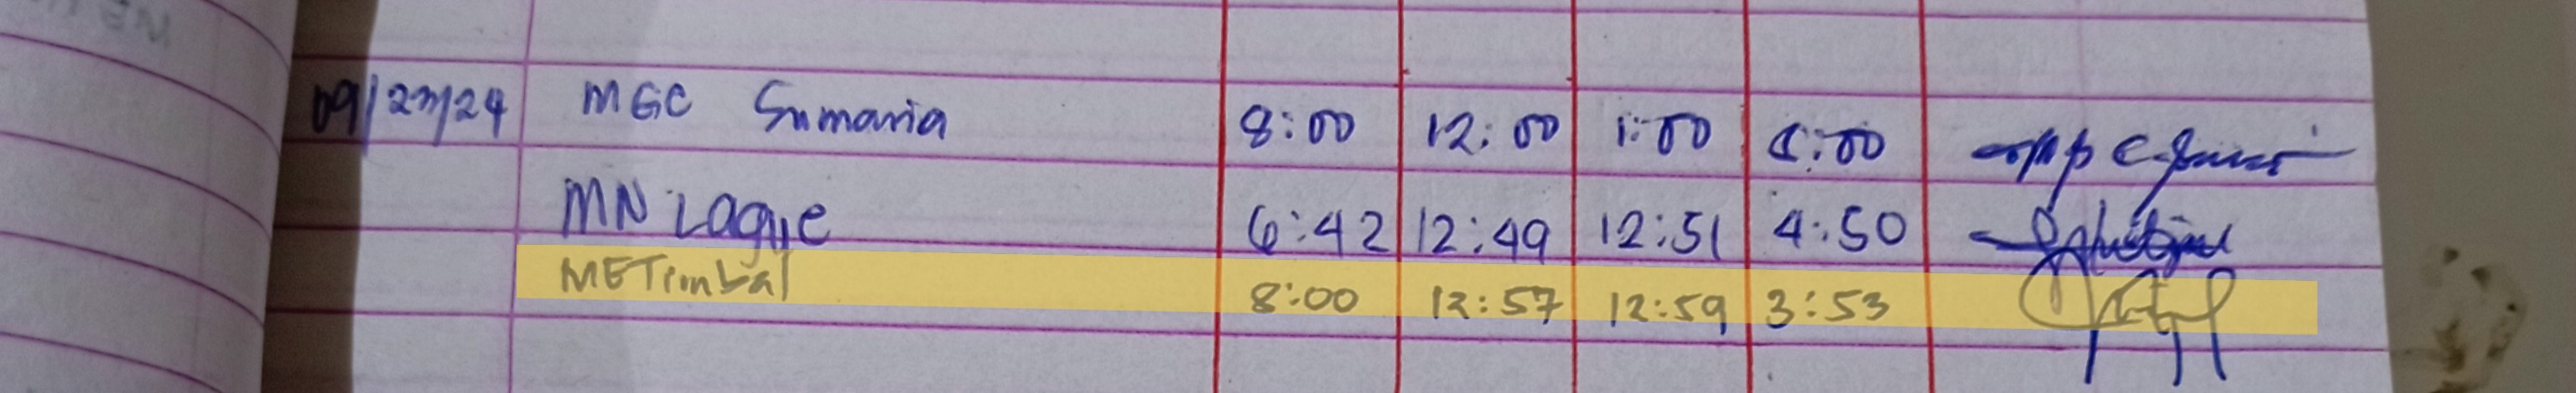 09/27/24 MGC Sumaria 8:00 12:00 1:00 5:00
MN Laque 6:42 12:49 12:51 4:50
METimbal 8:00 12:57 12:59 3:53